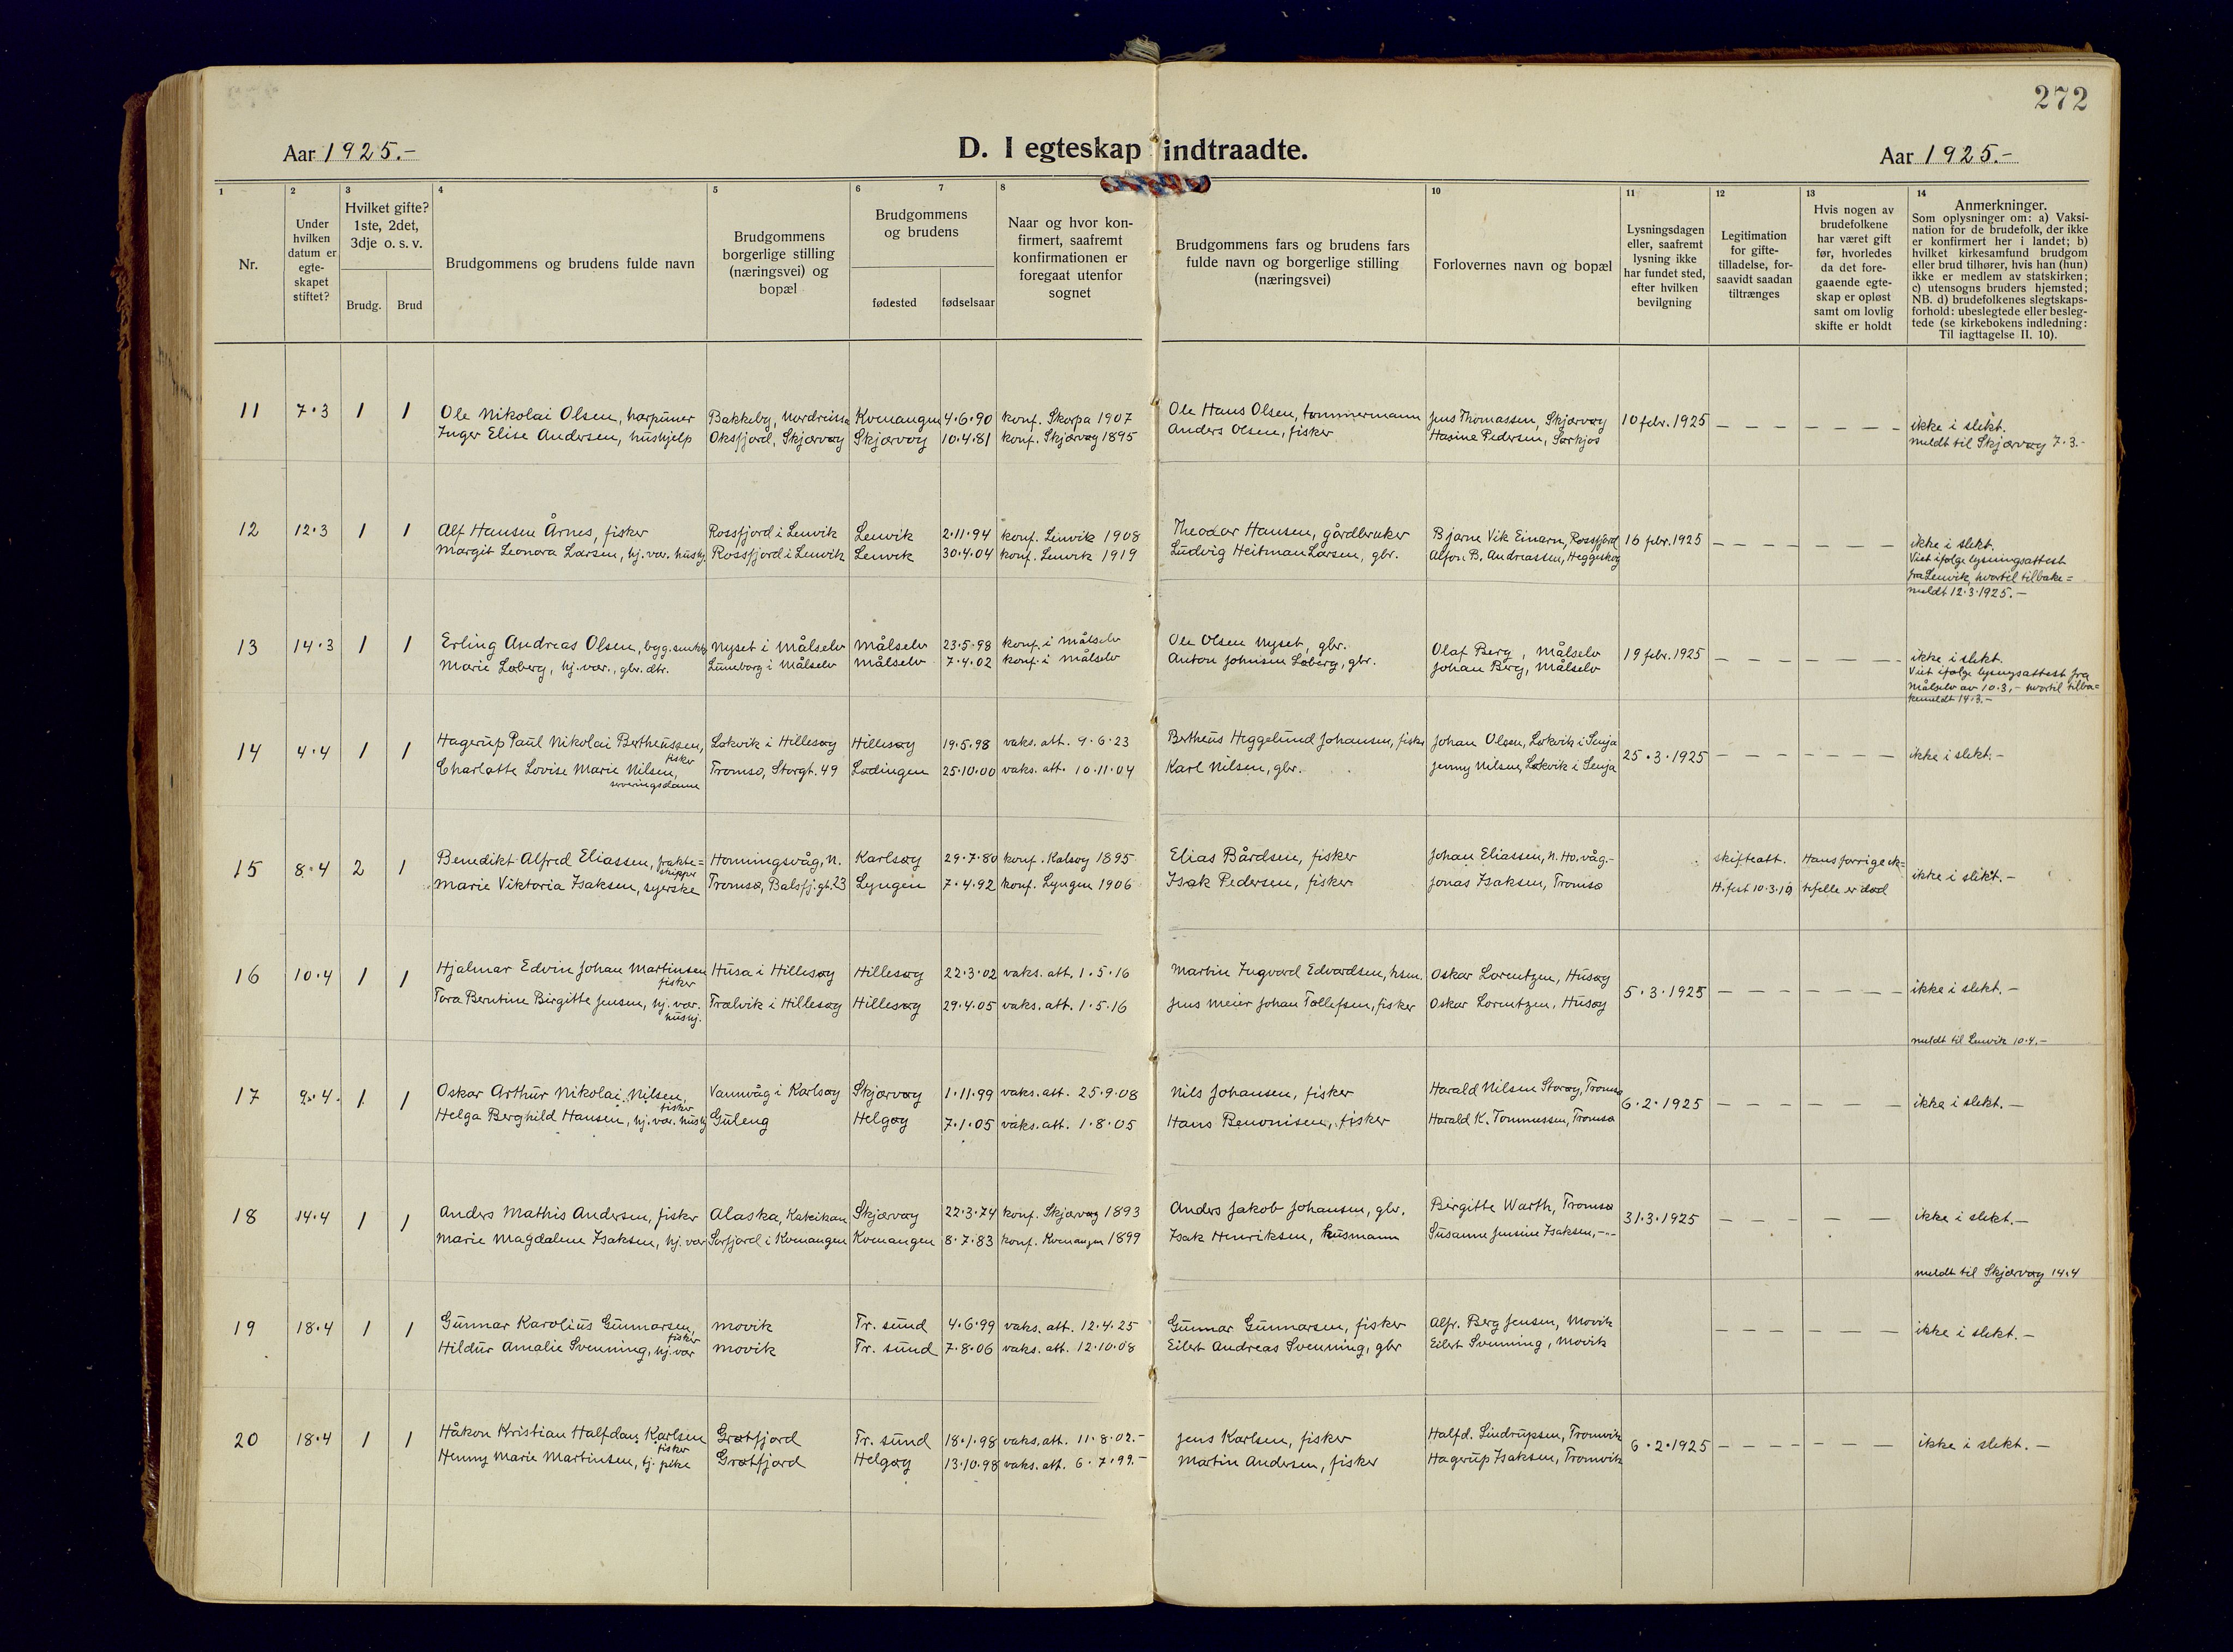 272
Aar 1925.-
D. I egteskap indtraadte.
Aar 1925.-
1 2 3 4 5 6 7 8 10 11 12 13 14
Nr.
Under hvilken datum er egte-skapet stiftet?
Hvilket gifte? 1ste, 2det, 3dje o. s. v.
Brudg. Brud
Brudgommens og brudens fulde navn
Brudgommens borgerlige stilling (næringsvei) og bopæl
Brudgommens og brudens
fødested fødselsaar
Naar og hvor kon-firmert, saafremt konfirmationen er foregaat utenfor sognet
Brudgommens fars og brudens fars fulde navn og borgerlige stilling (næringsvei)
Forlovernes navn og bopæl
Lysningsdagen eller, saafremt lysning ikke har fundet sted, efter hvilken bevilgning
Legitimation for gifte-tilladelse, for-saavidt saadan tiltrænges
Hvis nogen av brudefolkene har været gift før, hvorledes da det fore-gaaende egte-skap er opløst samt om lovlig skifte er holdt
Anmerkninger.
Som oplysninger om: a) Vaksi-nation for de brudefolk, der ikke er konfirmert her i landet; b) hvilket kirkesamfund brudgom eller brud tilhører, hvis han (hun) ikke er medlem av statskirken; c) utensogns bruders hjemsted; NB. d) brudefolkenes slegtskaps-forhold: ubeslegtede eller besleg-tede (se kirkebokens indledning: Til iagttagelse II. 10).
11 7.3 1 1 Ole Nikolai Olsen, harpuner Bakkeby, Nordreisa Kvenangen 4.6.90 konf. Skorpa 1907 Ole Hans Olsen, tømmermann Jens Thomassen, Skjærvøy 10 febr. 1925 ikke i slekt.
Inger Elise Andersen, hushjelp Oksfjord, Skjærvøy Skjærvøy 10.4.81 konf. Skjærvøy 1895 Anders Olsen, fisker Hasine Pedersen, Sørkjos meldt til Skjærvøy 7.3.-
12 12.3 1 1 Alf Hansen Årnes, fisker Rossfjord i Lenvik Lenvik 2.11.94 konf. Lenvik 1908 Theodor Hansen, gårdbruker Bjarne Vik Einarn, Rossfjord 16 febr. 1925 ikke i slekt.
Margit Leonora Larsen, hj.vær. hushj. Rossfjord i Lenvik Lenvik 30.4.04 konf. Lenvik 1919 Ludvig Heitman Larsen, gbr. Alfon B. Andreassen, Heggeskog Viet ifølge lysningsattest
fra Lenvik, hvortil tilbake=
meldt 12.3.1925.-
13 14.3 1 1 Erling Andreas Olsen, Nyset i Målselv Målselv 23.5.98 konf. i Målselv Ole Olsen Nyset, gbr. Olaf Berg, Målselv 19 febr. 1925 ikke i slekt.
Marie Løberg, hj.vær., gbr. dtr. Luneborg i Målselv Målselv 7.4.02 konf. i Målselv Anton Johnsen Løberg, gbr. Johan Berg, Målselv Viet ifølge lysningsattest fra
Målselv av 10.3,- hvortil tilba-
kemeldt 14.3.-
14 4.4 1 1 Hagerup Paul Nikolai Bertheussen, fisker Løkvik i Hillesøy Hillesøy 19.5.98 vaks. att. 9.6.23 Bertheus Heggelund Johansen, fisker Johan Olsen, Løkvik i Senja 25.3.1925 ikke i slekt.-
Charlotte Lovise Marie Nilsen, serveringsdame Tromsø, Storgt. 49 Lødingen 25.10.00 vaks. att. 10.11.04 Karl Nilsen, gbr. Jenny Nilsen, Løkvik i Senja
15 8.4 2 1 Benedikt Alfred Eliassen, frakte=skipper Honningsvåg, N. Karlsøy 29.7.80 konf. Kalsøy 1895 Elias Bårdsen, fisker Johan Eliassen, N. Ho.våg.- skifteatt. Hans forrige ek= ikke i slekt.-
Marie Viktoria Isaksen, syerske Tromsø, Balsfj.gt. 23 Lyngen 7.4.92 konf. Lyngen 1906 Isak Pedersen, fisker Jonas Isaksen, Tromsø H.fest 10.3.19 tefelle er død
16 10.4 1 1 Hjalmar Edvin Johan Martinsen fisker Husø i Hillesøy Hillesøy 22.3.02 vaks. att. 1.5.16 Martin Ingvard Edvardsen, hsm. Oskar Lorentzen, Husøy 5.3.1925 ikke i slekt.-
Tora Berntine Birgitte Jensen, hj.vær. hushj. Trælvik i Hillesøy Hillesøy 29.4.05 vaks. att. 1.5.16 Jens Meier Johan Tollefsen, fisker Oskar Lorentzen, Husøy
meldt til Lenvik 10.4.-
17 9.4. 1 1 Oskar Arthur Nikolai Nilsen, fisker Vannvåg i Karlsøy Skjærvøy 1.11.99 vaks. att. 25.9.08 Nils Johansen, fisker Harald Nilsen Storøy, Tromsø 6.2.1925 ikke i slekt.-
Helga Berghild Hansen, hj.vær. hushj Guleng Helgøy 7.1.05 vaks. att. 1.8.05 Hans Benonisen, fisker Harald K. Tommessen, Tromsø
18 14.4 1 1 Anders Mathis Andersen, fisker Alaska, Kateikan Skjærvøy 22.3.74 konf. Skjærvøy 1893 Anders Jakob Johansen, gbr. Birgitte Warth, Tromsø 31.3.1925 ikke i slekt.-
Marie Magdalene Isaksen, hj.vær Sørfjord i Kvenangen Kvenangen 8.7.83 konf. Kvenangen 1899 Isak Henriksen, husmann Susanne Jensine Isaksen, -"-
meldt til Skjærvøy 14.4
19 18.4 1 1 Gunnar Karolius Gunnarsen, fisker Movik Tr. sund 4.6.99 vaks. att. 12.4.25 Gunnar Gunnarsen, fisker Alfr. Berg Jensen, Movik ikke i slekt.-
Hildur Amalie Svenning, hj.vær Movik Tr. sund 7.8.06 vaks. att. 12.10.08 Eilert Andreas Svenning, gbr Eilert Svenning, Movik
20 18.4 1 1 Håkon Kristian Halfdan Karlsen fisker Grøtfjord Tr. sund 18.1.98 vaks. att. 11.8.02.- Jens Karlsen, fisker Halfd. Lindrupsen, Tromvik 6.2.1925 ikke i slekt.-
Henny Marie Martinsen, tj. pike Grøtfjord Helgøy 13.10.98 vaks. att. 6.7.99.- Martin Andersen, fisker Hagerup Isaksen, Tromvik